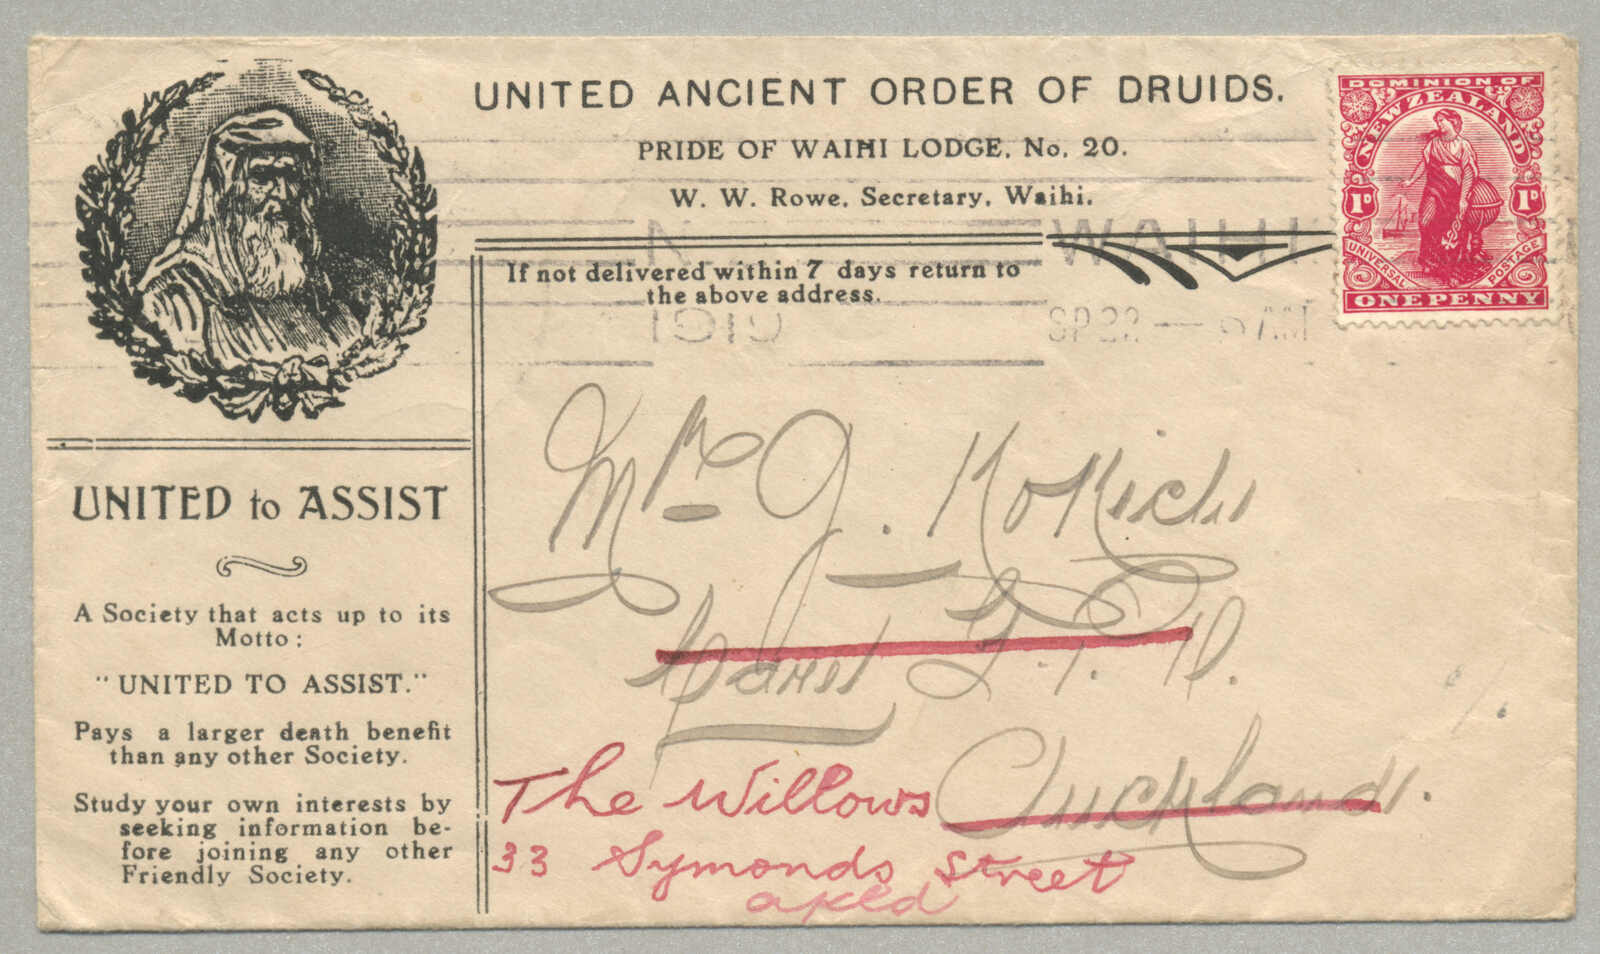 UNITED ANCIENT ORDER OF DRUIDS.
PRIDE OF WAIHI LODGE, No. 20.
W. W. Rowe, Secretary, Waihi.
If not delivered within 7 days return to
the above address.
DOMINION OF
NEW ZEALAND
1D 1D
UNIVERSAL POSTAGE
ONE PENNY
WAIHI
SP 22 —
UNITED to ASSIST
A Society that acts up to its
Motto:
"UNITED TO ASSIST."
Pays a larger death benefit
than any other Society.
Study your own interests by
seeking information be-
fore joining any other
Friendly Society.
Mr G.
Auckland.
The Willows
33 Symonds Street
akld